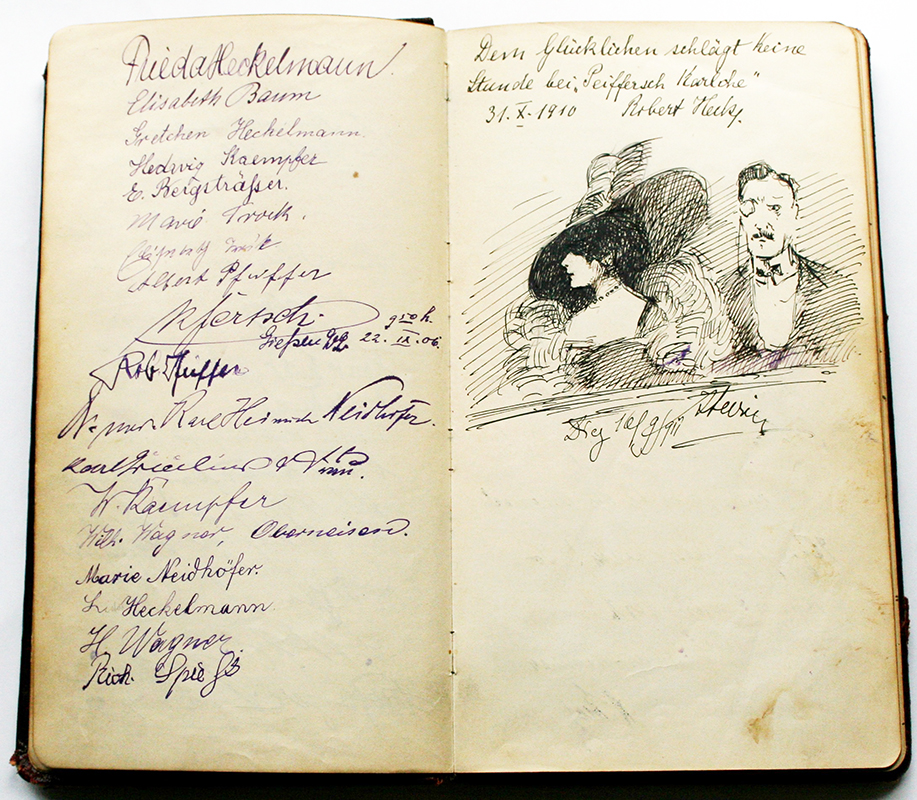 Frieda Heckelmann.
Elisabeth Baum
Gretchen Heckelmann.
Hedwig Kaempfer
E. Bergsträſser.
Marie
Albert Pfeiffer
9 50 h.
Gieſsen 22. IX. 06.
Rob Pfeiffer
Dr. med. Karl Heinrich Neidhöfer.
Karl
W. Kaempfer
Wilh. Wagner, Oberneisen.
Marie Neidhöfer.
Heckelmann
H. Wagner.
Rich. Spieß
Dem Glücklichen schlägt keine
Stunde bei „Peiffersch Karlche"
31. X. 1910 Robert Heck.
Diez